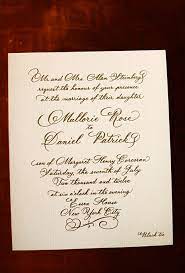 Mr. and Mrs. Alan Steinberg
request the honour of your presence
at the marriage of their daughter
Mallorie Rose
to
Daniel Patrick
son of Margaret Henry Corcoran
Saturday, the seventh of July
Two thousand and twelve
at six o'clock in the evening
House
New York City
Black tie